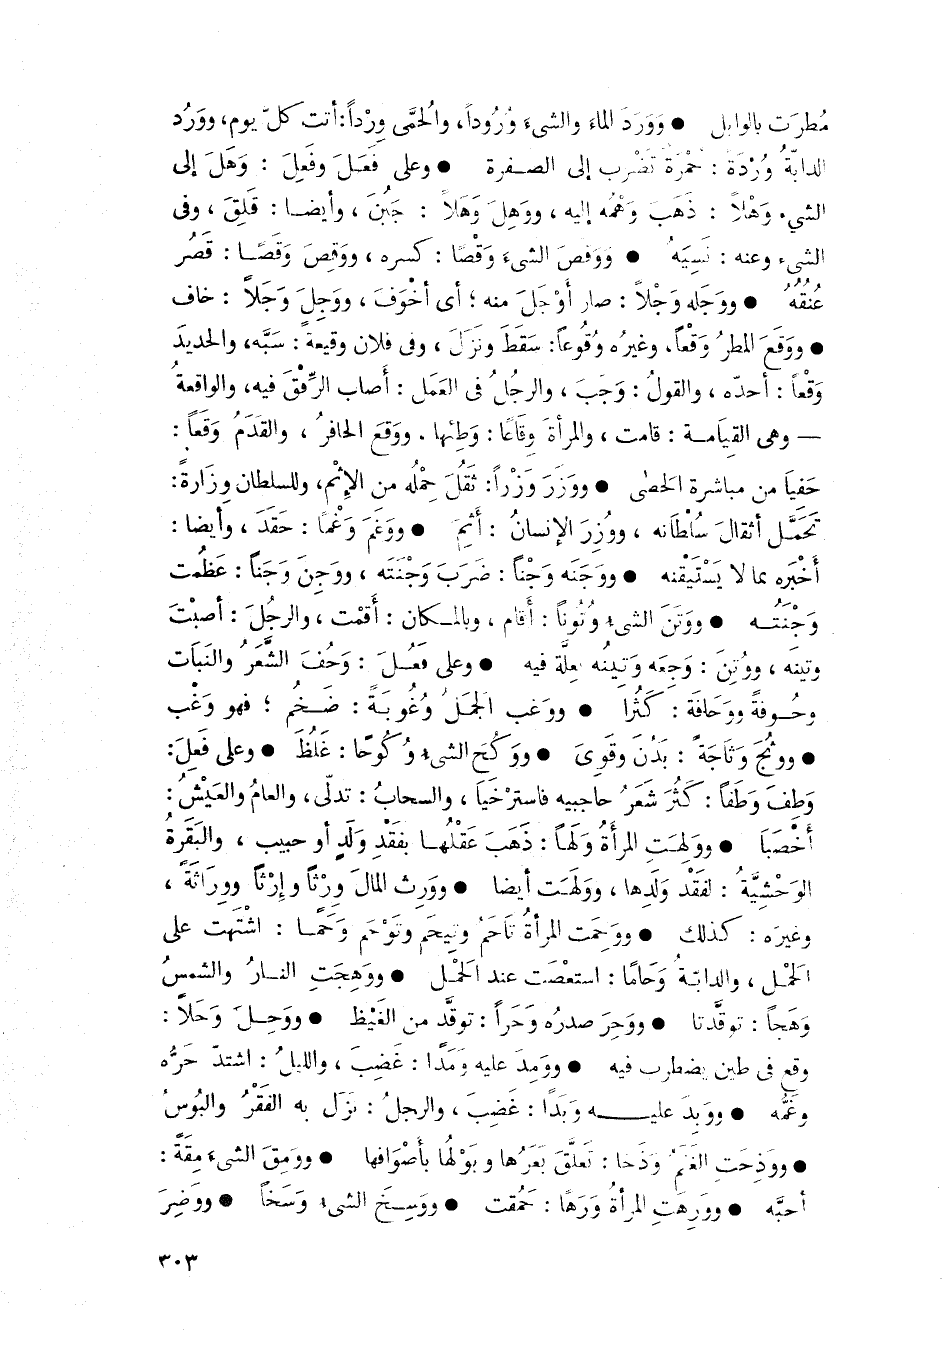 مُطرَت بالوابل ● وَوَرَدَ الماءَ والشىءَ وُرُوداً، والْحمَّى وِرْداً: أتت كلّ يوم، ووَرُد
الدابَّةُ وُرْدَةً : حُمْرَةٌ تَضْرِب إلى الصـفرة ● وعلى فَعَـلَ وفَعِلَ : وَهَلَ إلى
الشىء وَهْلاً : ذَهَبَ وَهْمُه إليه ، ووَهِلَ وَهَلاً : جَبُنَ ، وأيضـا : قَلِقَ ، وفى
الشىء وعنه : نَسِيَهُ ● وَوَقَصَ الشىءَ وَقْصًا : كسره ، ووَقِصَ وَقَصًـا : قَصُر
عُنُقُهُ ● ووَجَله وَجْلاً : صار أَوْجَلَ منه ؛ أى أخْوَفَ ، ووَجِلَ وَجَلاً : خاف
● ووَقَعَ المطرُ وَقْعاً، وغيرُه وُقُوعاً: سَقَطَ ونَزَلَ ، وفى فلان وقيعةً : سَبَّه، والحديدَ
وَقْعاً : أحدّه ، والقولُ : وَجَبَ ، والرجلُ فى العَمَل : أصاب الرِّفْقَ فيه، والواقعةُ
— وهى القيَامـة : قامت ، والمرأةَ وِقَاعًا : وَطِئها . ووَقِعَ الحافرُ ، والقَدَمُ وَقَعاً :
حَفِيَا من مباشرة الحَصٰى ● ووَزَرَ وَزْراً: ثَقُلَ حِمْلُه من الإِثْمِ، وللسلطان وِزَارةً:
تَحَمَّـل أثقالَ سُلْطَانه ، ووُزِرَ الإنسانُ : أَثِمَ ● ووَغَمَ وَغْمًا : حَقَدَ ، وأيضا :
أَخْبَره بما لا يَسْتَيْقنه ● ووَجَنَه وَجْناً : ضَرَبَ وَجْنَتَه ، ووَجِنَ وَجَناً : عَظُمت
وَجْنَتُــه ● ووَتَنَ الشىءُ وُتُوناً : أَقام ، وبالمـكان : أقَمْت ، والرجُلَ : أصبْتَ
وتينه ، ووُتِنَ : وَجِعَه وَتِينُه لعِلَّة فيه ● وعلى فَعُـلَ : وَحُفَ الشَّعَرُ والنَّبَات
وحُـوفةً ووَحَافَة : كَثُرا ● ووَغب الجَمَـلُ وُغُوبَـةً : ضَـخُم ؛ فهو وَغْب
● ووَثُجَ وَثَاجَةً : بَدُنَ وقَوِىَ ● ووَكُحَ الشىءُ وُكُوحًا : غَلُظَ ● وعلى فَعِلَ :
وَطِفَ وَطَفاً : كَثُرَ شَعَرُ حاجبيه فاسترْخَيَا ، والسحابُ : تدلَّى، والعامُ والعَيْشُ :
أَخْصَبَا ● ووَلِهَـتِ المرأَةُ وَلَهـاً : ذَهَبَ عَقْلُهـا بفَقْدِ وَلَدٍ أو حبيب ، والبَقَرةُ
الوَحْشِيَّةُ : لفَقْد وَلَدِها ، ووَلَهَـت أيضا ● ووَرِث المالَ وِرْثًا وإِرْثًا ووِرَاثَةً ،
وغيرَه : كذلك ● ووَحِمَت المرأةُ تَاحَمُ وتِيحَم وتَوْحَم وَحَمًـا : اشْتَهت على
الحَمْـل ، والدابّـةُ وَحَامًا : استعْصَت عند الحَمْـل ● ووَهِجَتِ النـارُ والشمسُ
وَهَجاً : توقَّدتا ● ووَحِرَ صدرُه وَحَراً : توقَّد من الغَيْظ ● ووَحِـلَ وَحَلاً :
وقع فى طين يضطرب فيه ● ووَمِدَ عليه وَمَدًا : غَضِبَ ، والليلُ : اشتدّ حَرُّه
وغَمُّه ● ووَبِدَ عليـــه وَبَدًا : غَضِبَ ، والرجلُ : نَزَل به الفَقْرُ والبُوسُ
● ووَذِحَتِ الغَنَمُ وَذَحا : تَعلَّقَ بَعَرُها وبَوْلُها بأَصْوَافها ● ووَمِقَ الشىءَ مِقَةً :
أحبَّه ● ووَرِهَتِ المرأةُ وَرَهًا : حَمُقت ● ووَسِـخَ الشىءُ وَسَخاً ● ووَضِرَ
٣٠٣